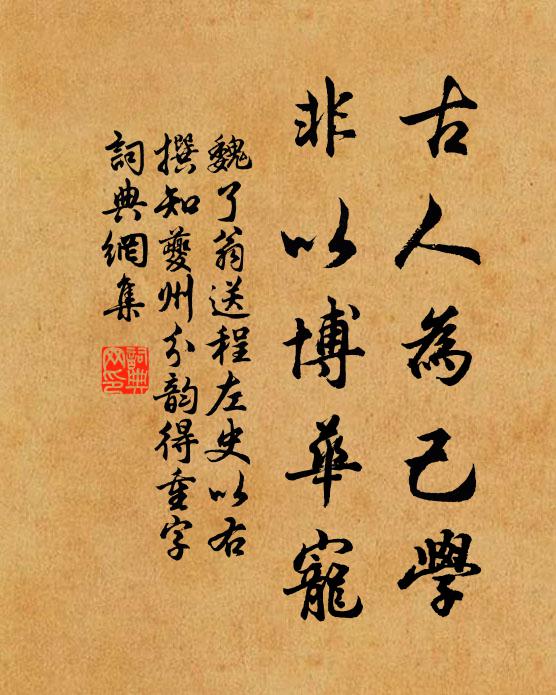 古人為己學
非以博華寵
魏了翁送程左史以右
撰知夔州分韵得重字
詞典網集
詞典
网印